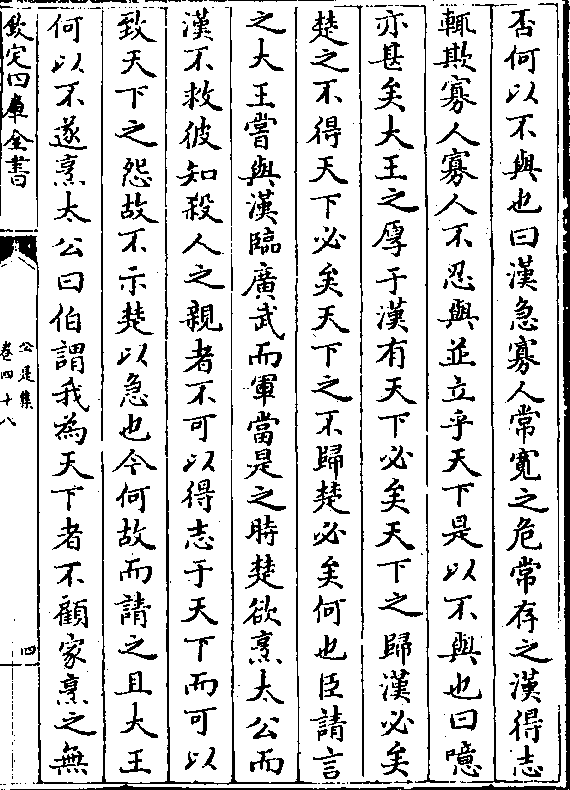 否何以不與也曰漢急寡人常寛之危常存之漢得志
輒欺寡人寡人不忍與並立乎天下是以不與也曰噫
亦甚矣大王之厚于漢有天下必矣天下之歸漢必矣
楚之不得天下必矣天下之不歸楚必矣何也臣請言
之大王嘗與漢臨廣武而軍當是之時楚欲烹太公而
漢不救彼知殺人之親者不可以得志于天下而可以
致天下之怨故不示楚以急也今何故而請之且大王
何以不遂烹太公曰伯謂我為天下者不顧家烹之無
欽定四庫全書
公是集
卷四十八
四